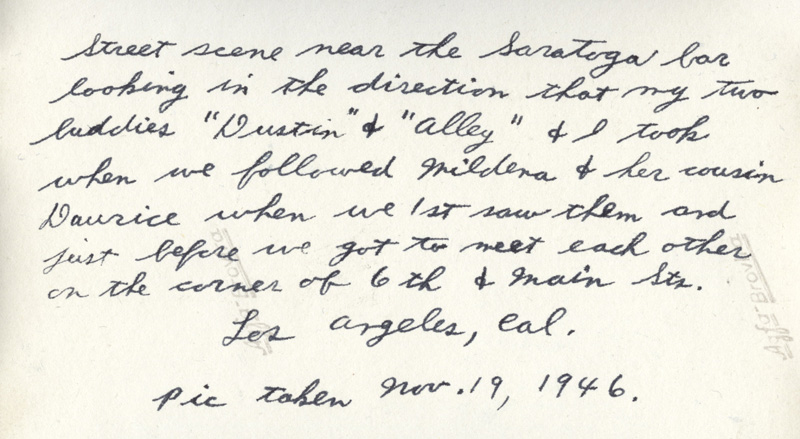 Street scene near the Saratoga bar
looking in the direction that my two
buddies "Dustin" & "Alley" & I took
when we followed Mildena & her cousin
Daurice when we 1st saw them and
just before we got to meet each other
on the corner of 6th & Main Sts.
Los Angeles, Cal.
Pic taken Nov. 19, 1946.